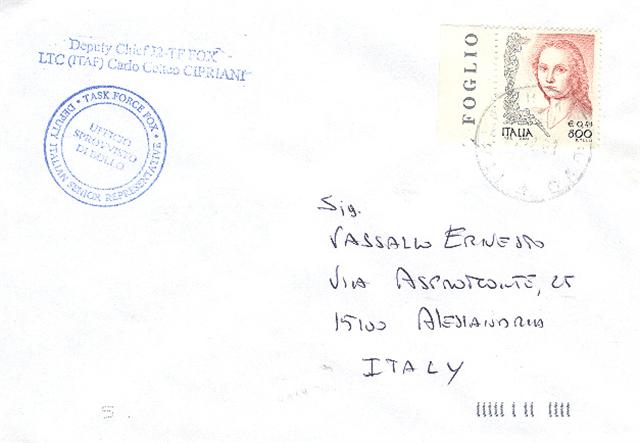 Deputy Chief J2-TF FOX
LTC (ITAF) Carlo Celico CIPRIANI
TASK FORCE FOX
DEPUTY ITALIAN SENIOR REPRESENTATIVE
UFFICIO
SPROVVISTO
DI BOLLO
FOGLIO
ITALIA
€ 0,41
800
Sig.
VASSALLO ERNESTO
VIA ASPROMONTE, 25
15100 ALESSANDRIA
ITALY